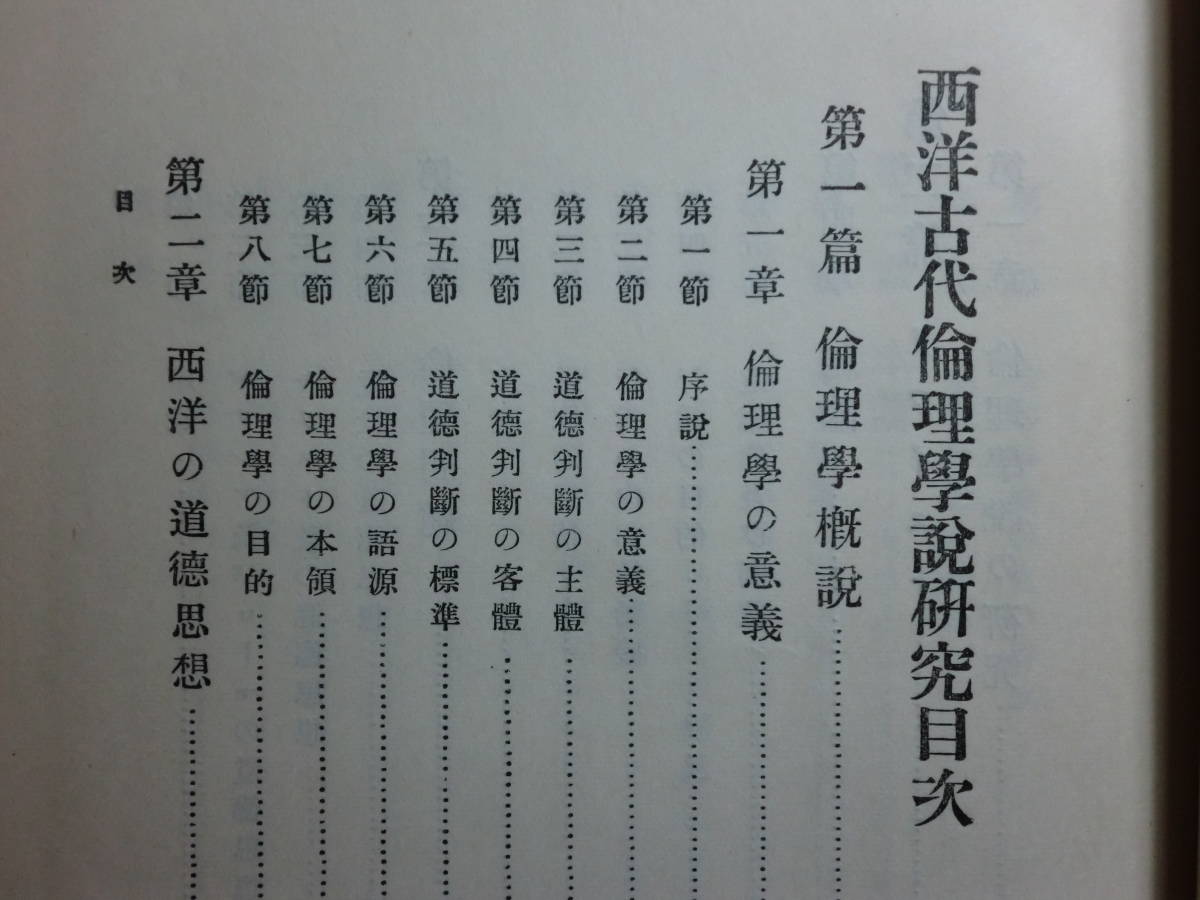 西洋古代倫理學說硏究目次
第一篇 倫理學槪說……………
第一章 倫理學の意義……………
第一節 序說……………
第二節 倫理學の意義……………
第三節 道德判斷の主體……………
第四節 道德判斷の客體……………
第五節 道德判斷の標準……………
第六節 倫理學の語源……………
第七節 倫理學の本領……………
第八節 倫理學の目的……………
第二章 西洋の道德思想……………
目次